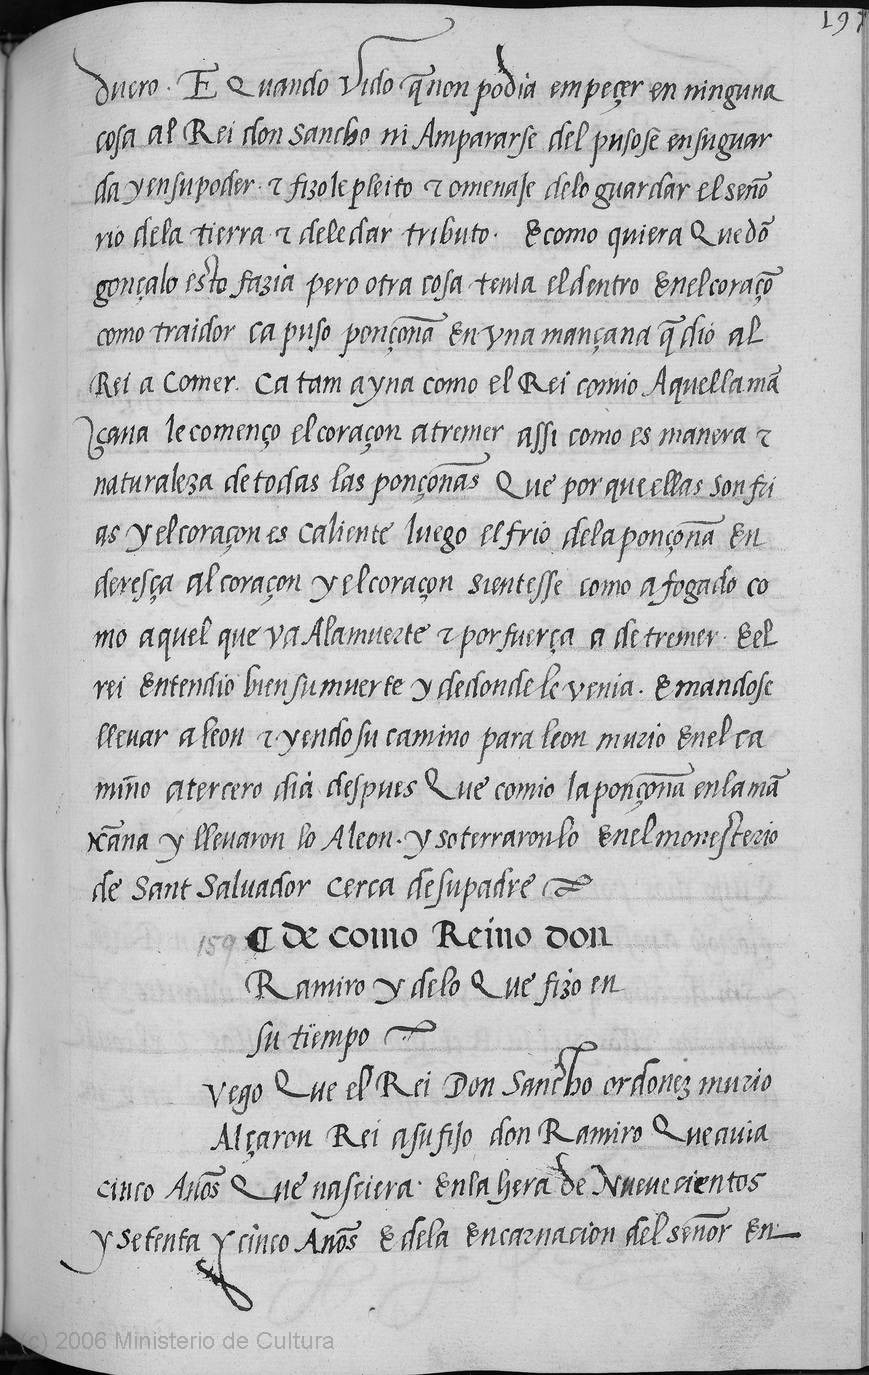 197
duero. E Quando Vido q̃ non podia empeçer en ninguna
cosa al Rei don sancho ni Ampararse del pusose en su guar
da y en su poder. τ fizole pleito τ omenaje de lo guardar el seño
rio de la tierra τ de le dar tributo. E como quiera Que dõ
gonçalo esto fazia pero otra cosa tenia el dentro En el coraçõ
como traidor ca puso ponçoña En vna mançana q̃ dio al
Rei a Comer. Ca tam ayna como el Rei comio Aquella mã
çana le començo el coraçon a tremer assi como es manera τ
naturaleza de todas las ponçoñas Que por que ellas son fri
as y el coraçon es Caliente luego el frio de la ponçoña En
deresça al coraçon y el coraçon sientesse como afogado co
mo aquel que va A la muerte τ por fuerça a de tremer. E el
rei Entendio bien su muerte y de donde le venia. E mandose
llevar a leon τ yendo su camino para leon murio En el ca
mino a tercero dia despues Que comio la ponçoña en la mã
xana y llevaron lo A leon. y soterraron lo En el monesterio
de Sant Salvador Cerca de su padre
159 ¶ De como Reino don
Ramiro y de lo Que fizo en
su tiempo
vego Que el Rei Don Sancho ordoñez murio
Alçaron Rei a su fijo don Ramiro Que avia
cinco Años Que nasciera. En la hera de Nuevecientos
y setenta y cinco Años E de la Encarnacion del señor En
(c) 2006 Ministerio de Cultura